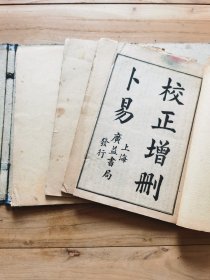 校正增删
卜易
上海
廣益書局
發行